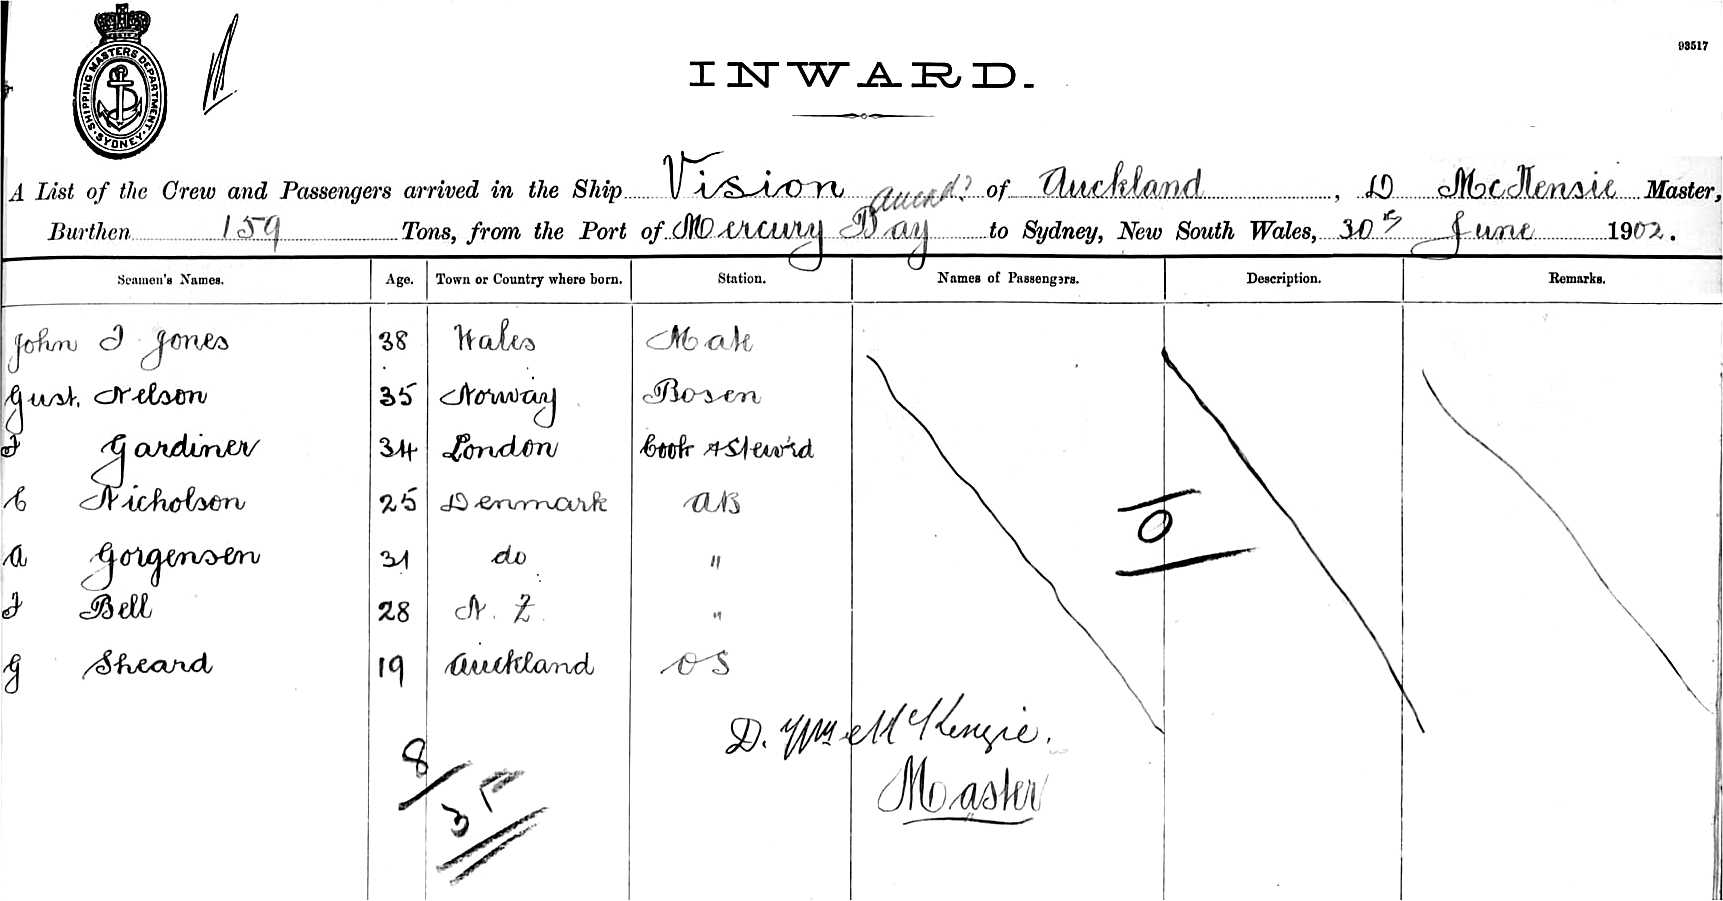 93517
SHIPPING MASTERS DEPARTMENT SYDNEY
INWARD.
A List of the Crew and Passengers arrived in the Ship Vision of Auckland, D McKensie Master,
Burthen 159 Tons, from the Port of Mercury Bay to Sydney, New South Wales, 30th June 1902.
Seamen's Names. Age. Town or Country where born. Station. Names of Passengers. Description. Remarks.
John T Jones 38 Wales Mate
Gust. Nelson 35 Norway Bosen
T Gardiner 34 London Cook & Stew'd
C Nicholson 25 Denmark AB
A Gorgensen 31 do "
T Bell 28 N. Z "
G Sheard 19 Auckland OS
0
D. Wm McKenzie.
Master
8